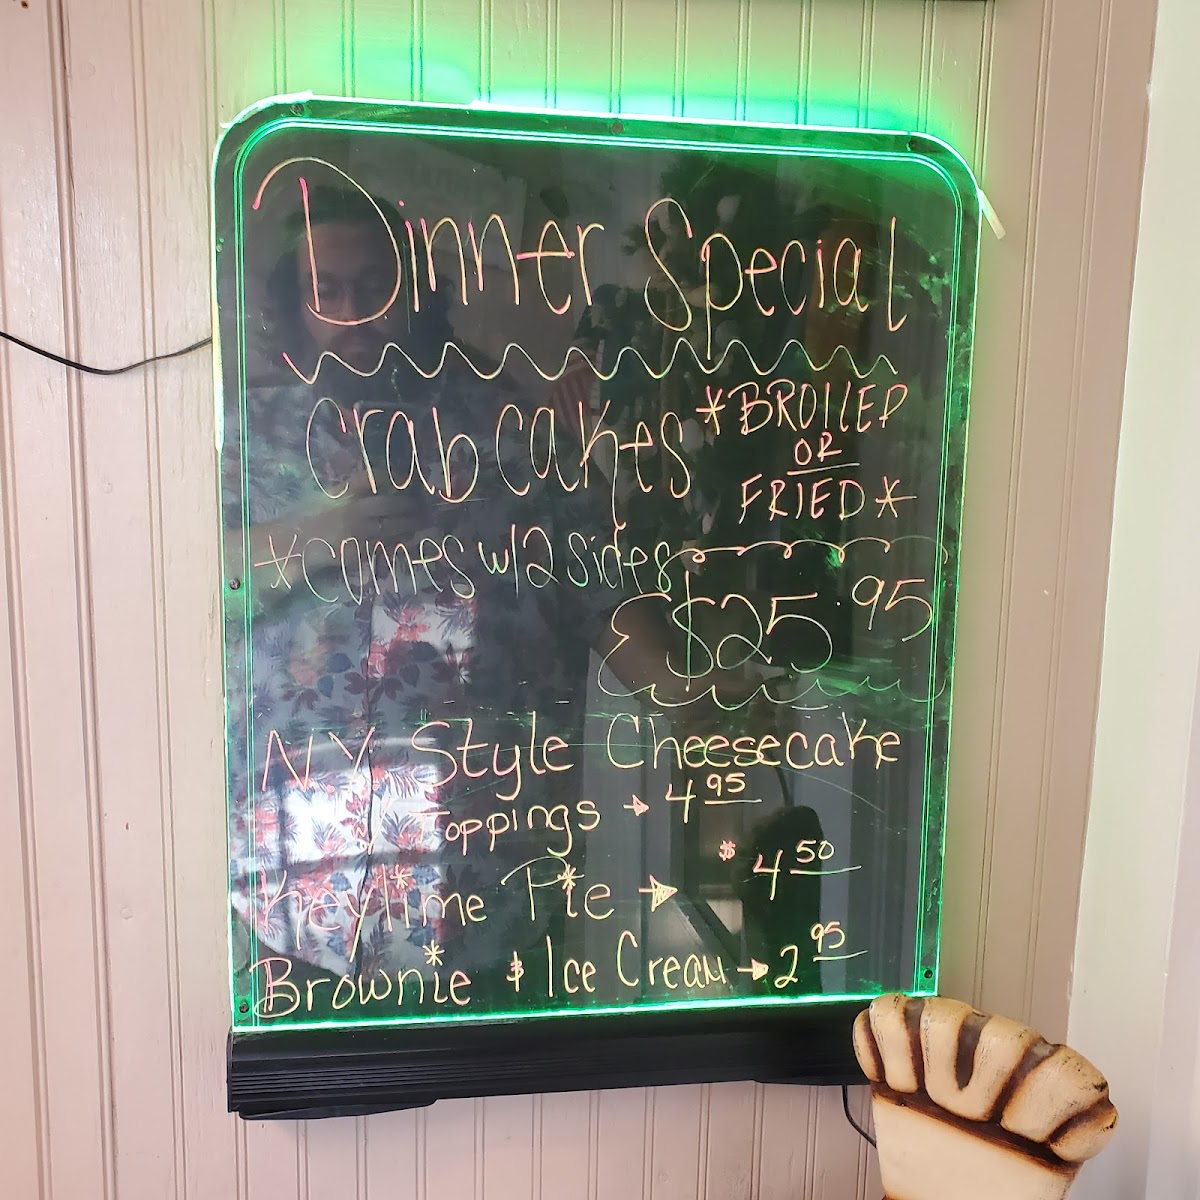 Dinner Special
Crab cakes
*BROILED
OR
FRIED*
*comes w/2 sides
$25.95
NY Style Cheesecake
Toppings → 4 95
Keylime Pie → $ 4 50
Brownie & Ice Cream → 2 95